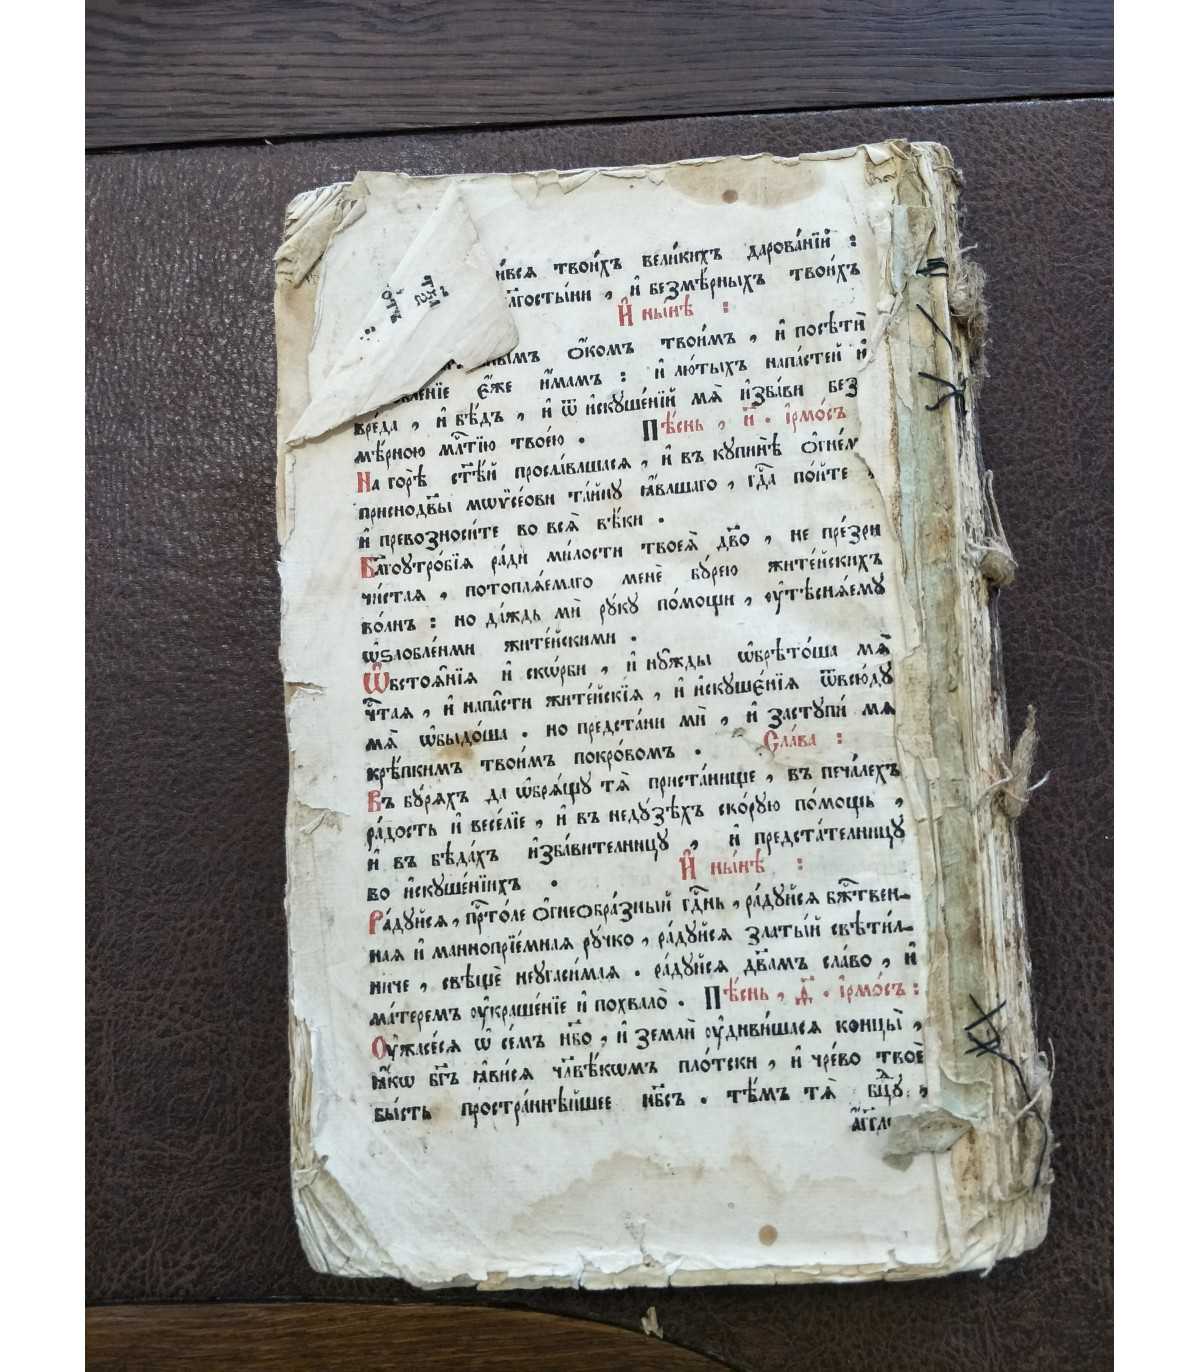 твои́хъ вели́кихъ дарова́нїй :
и҆ безмѣ́рныхъ твои́хъ
И҆ ны́нѣ :
ѻ҆́комъ твои́мъ , и҆ посѣтѝ
є҆́же и҆́мамъ : и҆ лю́тыхъ напа́стей и҆
вреда̀ , и҆ бѣ́дъ , и҆ ѿ и҆скꙋше́нїй мѧ̀ и҆зба́ви без
мѣ́рною млⷭ҇тїю твое́ю . Пѣ́снь , и҃ . і҆рмо́съ
На горѣ̀ ст҃ѣ́й просла́вшасѧ , и҆ въ кꙋпинѣ̀ ѻ҆гне́м
приснодв҃ы мѡѷсе́ови та́йнꙋ ꙗ҆́вльшаго , гдⷭ҇а по́йте ,
и҆ превозноси́те во всѧ̀ вѣ́ки .
Бл҃гоꙋтро́бїѧ ра́ди ми́лости твоеѧ̀ дв҃о , не пре́зри
чи́стаѧ , потоплѧ́емаго менѐ бꙋ́рею жите́йскихъ
во́лнъ : но да́ждь мѝ рꙋ́кꙋ по́мощи , ᲂу҆тѣснѧ́емꙋ
ѡ҆ѕлобле́ньми жите́йскими .
Ѡ҆бстоѧ̑нїѧ и҆ скѡ́рби , и҆ нꙋ́жды ѡ҆брѣто́ша мѧ̀
чⷭ҇таѧ , и҆ напа̑сти жите́йскїѧ , и҆ и҆скꙋшє́нїѧ ѿвсю́дꙋ
мѧ̀ ѡ҆быдо́ша . но предста́ни мѝ , и҆ застꙋпи́ мѧ
крѣ́пкимъ твои́мъ покро́вомъ . Сла́ва :
Въ бꙋ́рѧхъ да ѡ҆брѧ́щꙋ тѧ̀ приста́нище , въ печа́лехъ
ра́дость и҆ весе́лїе , и҆ въ недꙋ́зѣхъ ско́рꙋю по́мощь ,
и҆ въ бѣда́хъ и҆зба́вительницꙋ , и҆ предста́телницꙋ
во и҆скꙋше́нїихъ . И҆ ны́нѣ :
Ра́дꙋйсѧ , прⷭ҇то́ле ѻ҆гнеѻбра́зный гдⷭ҇нь , ра́дꙋйсѧ бж҃твен-
наѧ и҆ маннопрїе́мнаѧ рꙋ́чко , ра́дꙋйсѧ златы́й свѣти́л-
ниче , свѣщѐ неꙋгаси́маѧ . ра́дꙋйсѧ дв҃амъ сла́во , и҆
ма́теремъ ᲂу҆краше́нїе и҆ похвало̀ . Пѣ́снь , ѳ҃ . і҆рмо́съ :
Оу҆жасе́сѧ ѡ҆ се́мъ нб҃о , и҆ землѝ ᲂу҆диви́шасѧ концы̀ ,
ꙗ҆́кѡ бг҃ъ ꙗ҆ви́сѧ чл҃вѣ́кѡмъ пло́тски , и҆ чре́во твоѐ
бы́сть простра́ннѣйшее нб҃съ . тѣ́мъ тѧ̀ бцⷣꙋ ,